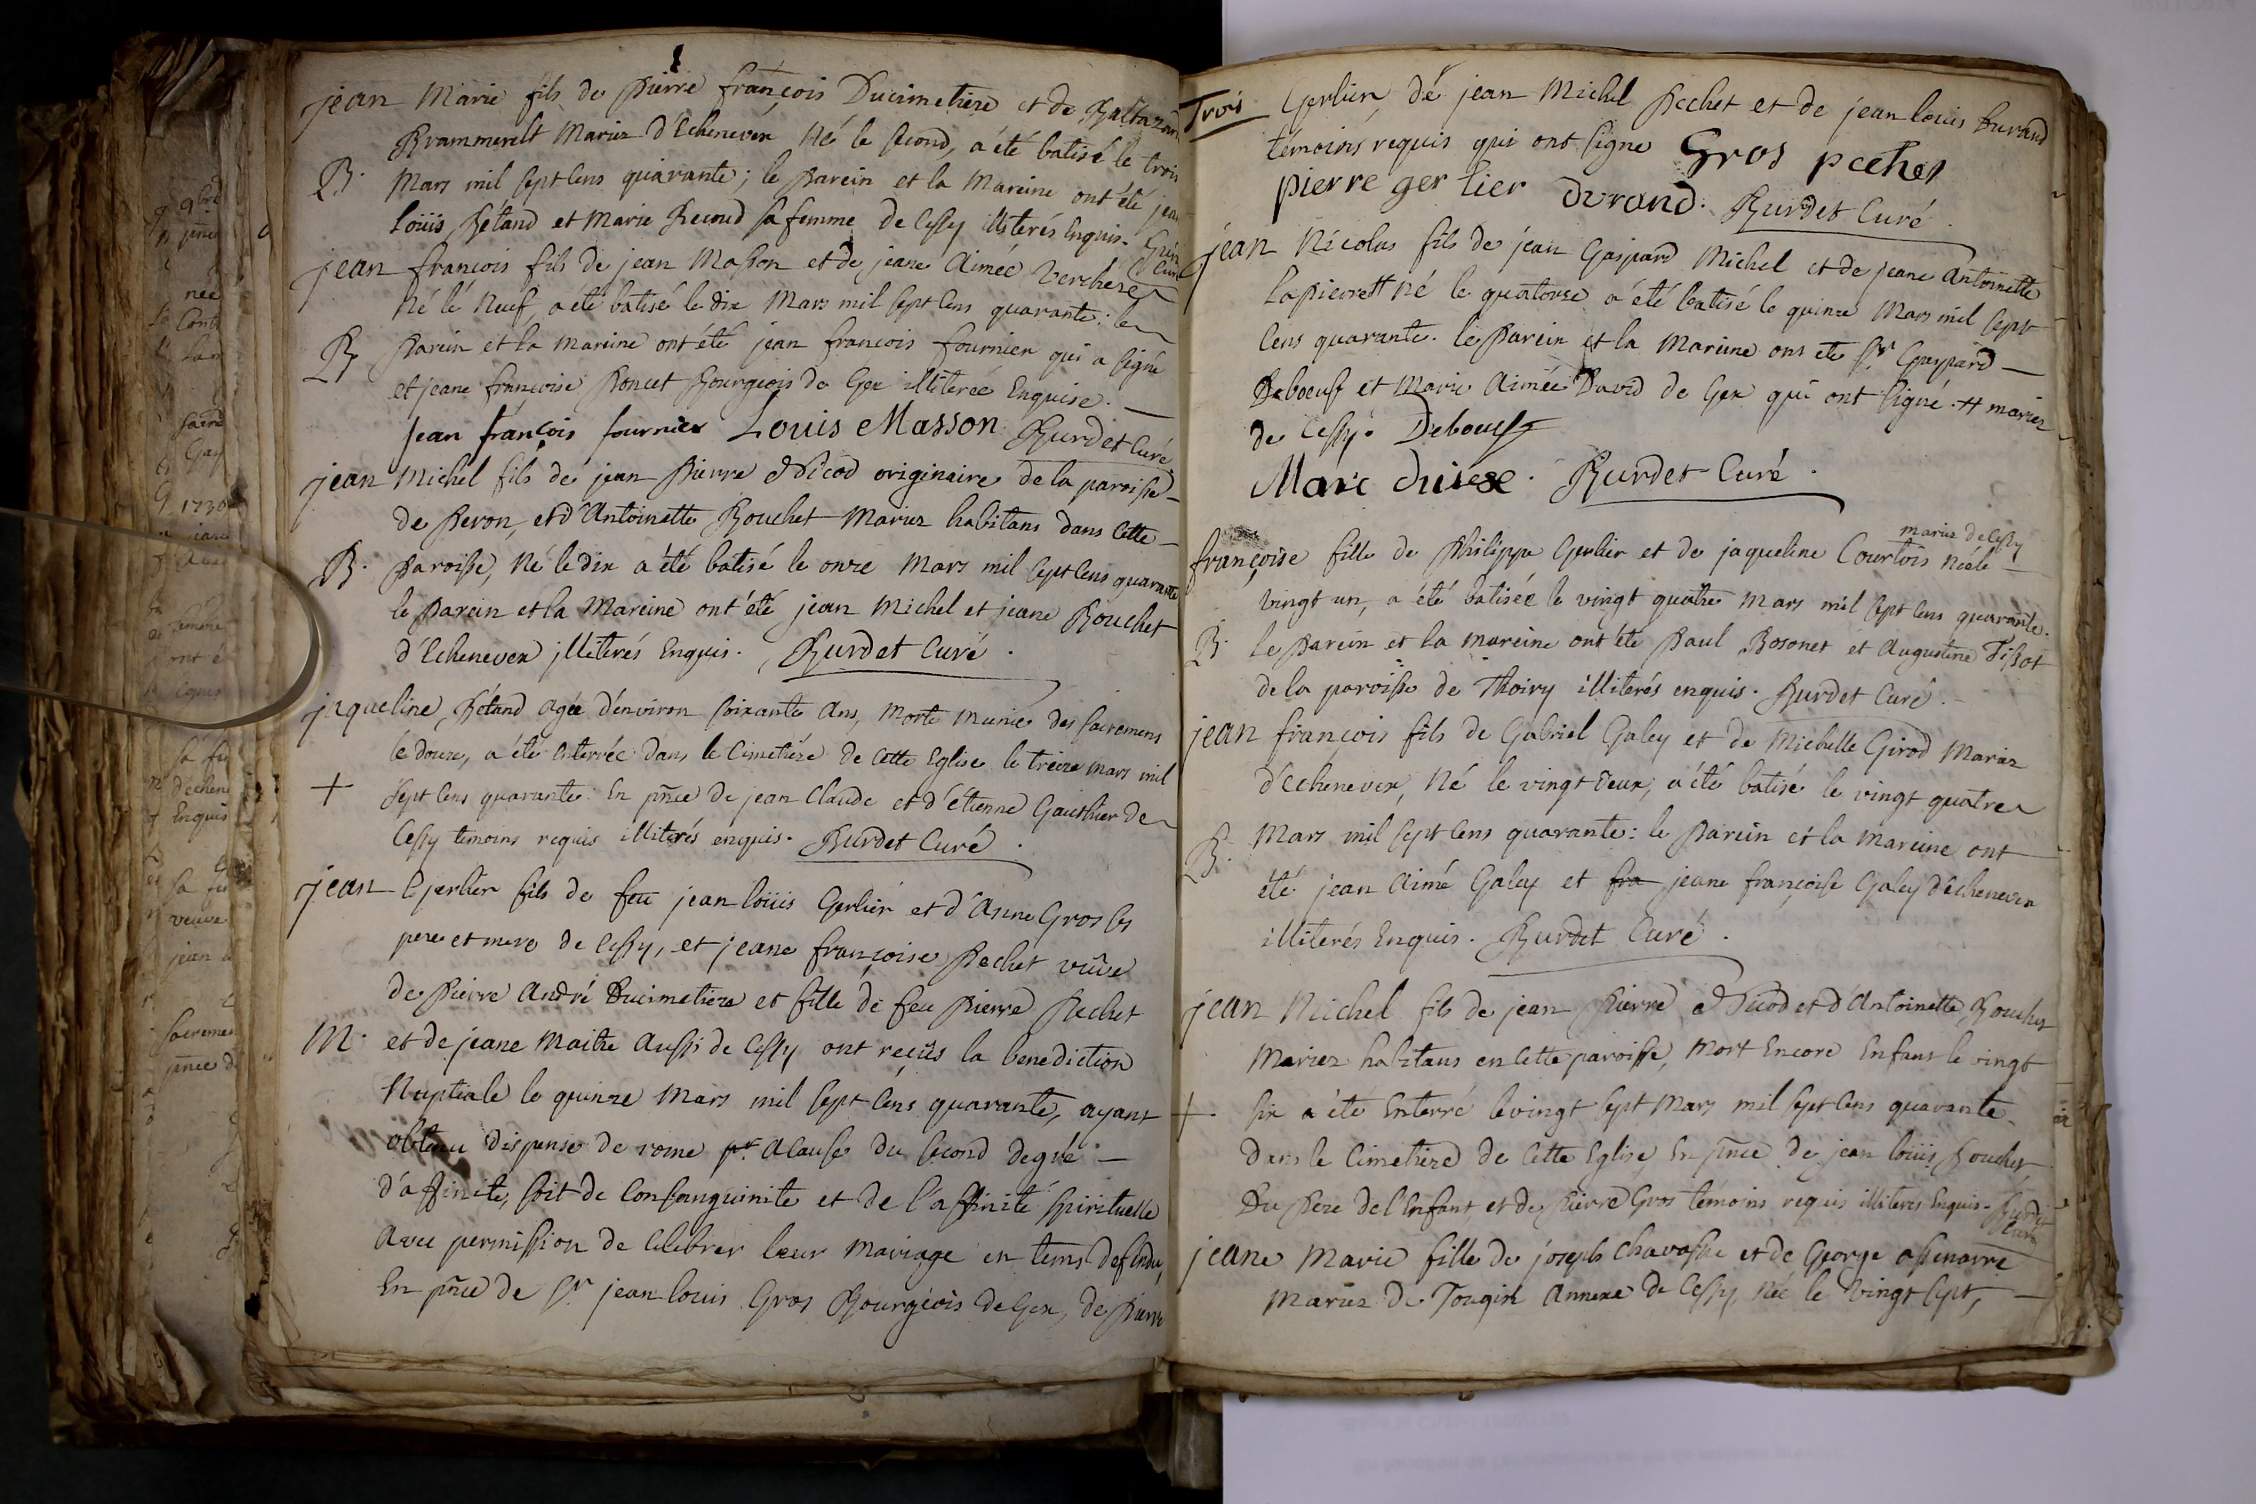 jean Marie fils de Pierre françois Ducimetiere et de Baltazard
Brammerelt Mariez d'Echenevex Né le second, a été batisé le trois
B. Mars mil sept Cens quarante; le Parein et la Mareine ont été jean
Loüis Bétand et Marie Recoud sa femme de Cessy illiterés Enquis.
Curé
jean françois fils de jean Masson et de jeane Aimée Verchere
Né lé Neuf, a été batisé le dix Mars mil sept Cens quarante: le
B. Parein et la Mareine ont été jean francois fournier qui a signé
et jeane francoise Poncet Bourgeois de Gex illiterée Enquise.
jean françois fournier Louis Masson Burdet Curé
jean Michel fils de jean Pierre Nicod originaire de la paroisse
de Peron, et d'Antoinette Bouchet Mariez habitans dans Cette
B. Paroisse, Né le dix a été batisé le onze Mars mil sept Cens quarante
le Parein et la Mareine ont été jean Michel et jeane Bouchet
d'Echenevex illiterés Enquis. Burdet Curé.
jaqueline Bétand agée d'environ soixante ans, Morte Munie des sacremens
le douze, a été enterrée dans le Cimetiére de Cette Eglise le treize Mars mil
+ sept Cens quarante. En pnce de jean Claude et d'étienne Gauthier de
Cessy temoins requis illiterés enquis. Burdet Curé.
jean Gerlier fils de feu jean loüis Gerlier et d'Anne Gros ses
pere et mere de Cessy, et jeane françoise Pechet vûve
de Pierre André Ducimetiere et fille de feu Pierre Pechet
M. et de jeane Maitre Aussi de Cessy ont reçûs la benediction
Nuptiale le quinze Mars mil sept Cens quarante, ayant
obtenu dispense de rome pr. acause du second degré
d'affinité, soit de Consanguinité et de l'affinité spirituelle
Avec permission de Celebrer leur Mariage en tems defendu,
En pnce de Sr jean louis Gros Bourgeois de Gex, de Pierre
Trois Gerlier, de jean Michel Pechet et de jean loüis Durand
témoins requis qui ont signé Gros pechet
pierre gerlier durand. Burdet Curé
jean Nicolas fils de jean Gaspard Michel et de jeane Antoinette
Lapierre # né le quatorze a été batisé le quinze Mars mil sept
Cens quarante. le Parein et la Mareine ont été Sr Gaspard
Deboeuf et Marie Aimée David de Gex qui ont signé. # mariez
de Cessy. Deboeuf
Marc Burdet Curé.
mariez de Cessy
françoise fille de Philippe Gerlier et de jaqueline Courtois Née le
vingt un, a été batisée le vingt quatre Mars mil sept Cens quarante.
B. le Parein et la mareine ont été Paul Bosonet et Augustine Tissot
de la paroisse de Thoiry illiterés enquis. Burdet Curé.
jean françois fils de Gabriel Galey et de Michelle Girod Mariez
d'Echenevex, Né le vingt deux, a été batisé le vingt quatre
B. Mars mil sept Cens quarante: le Parein et la Mareine ont
été jean Aimé Galey et fra jeane françoise Galey d'Echenevex
illiterés Enquis. Burdet Curé.
jean Michel fils de jean Pierre Nicod et d'Antoinette Bouchet
Mariez habitans en Cette paroisse, Mort Encore Enfant le vingt
+ six a été Enterré le vingt sept Mars mil sept Cens quarante
dans le Cimetiere de Cette Eglise, En pnce de jean loüis Bouchet
du Pere de l'Enfant et de Pierre Gros témoins requis illiterés Enquis. Burdet
Curé
jeane Marie fille de joseph Chavasse et de George
Mariez de Tougin Annexe de Cessy Née le Vingt sept,